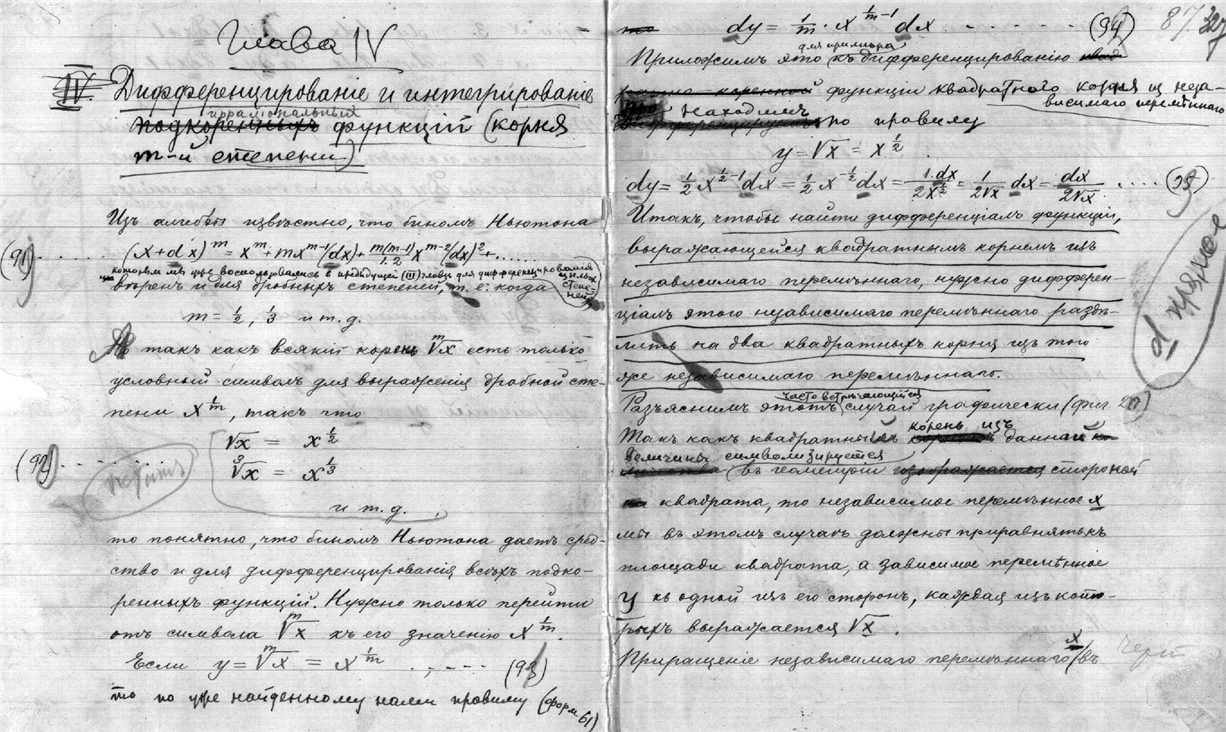 Глава IV
IV. Дифференцированіе и интегрированіе
ирраціональныхъ
подкоренныхъ функцій (корня
m-й степени)
Изъ алгебры извѣстно, что биномъ Ньютона
(91) ...... (x+dx)^m = x^m + mx^{m-1}(dx) + \frac{m(m-1)}{1.2} x^{m-2}(dx)^2 + ......
которымъ мы уже воспользовались в предыдущей (III) главѣ для дифференцированія цѣлыхъ степеней,
вѣренъ и для дробныхъ степеней, т. е. когда
m = ½, ⅓ и т. д.
А такъ какъ всякій корень \sqrt[m]{x} есть только
условный символъ для выраженія дробной сте-
пени x^{\frac{1}{m}}, такъ что
√x = x^{½}
(92) ......
∛x = x^{⅓}
и т. д.,
то понятно, что биномъ Ньютона даетъ сред-
ство и для дифференцированія всѣхъ подко-
ренныхъ функцій. Нужно только перейти
отъ символа \sqrt[m]{x} къ его значенію x^{\frac{1}{m}}.
Если y = \sqrt[m]{x} = x^{\frac{1}{m}} ...... (93)
то по уже найденному нами правилу (форм. 61)
87.
dy = \frac{1}{m} \cdot x^{\frac{1}{m}-1} dx ...... (94)
для примѣра
Приложимъ это къ дифференцированію
функціи квадратнаго корня из неза-
висимаго перемѣннаго
Находимъ
по правилу
y = √x = x^{½}
dy = ½ x^{½-1} dx = ½ x^{-½} dx = \frac{1.dx}{2x^{½}} = \frac{1}{2√x} dx = \frac{dx}{2√x} .... (95)
Итакъ, чтобы найти дифференціалъ функціи,
выражающейся квадратнымъ корнемъ изъ
независимаго перемѣннаго, нужно дифферен-
ціалъ этого независимаго перемѣннаго раздѣ-
лить на два квадратныхъ корня изъ того
же независимаго перемѣннаго.
d прямое
часто встрѣчающійся
Разъяснимъ этотъ случай графически (фиг. 20)
корень изъ
Такъ какъ квадратный данной
величины символизируется
въ геометріи изображается стороной
квадрата, то независимое перемѣнное x
мы въ этомъ случаѣ должны приравнять къ
площади квадрата, а зависимое перемѣнное
y къ одной изъ его сторонъ, каждая изъ кото-
рыхъ выражается √x.
Приращеніе независимаго перемѣннаго x (въ